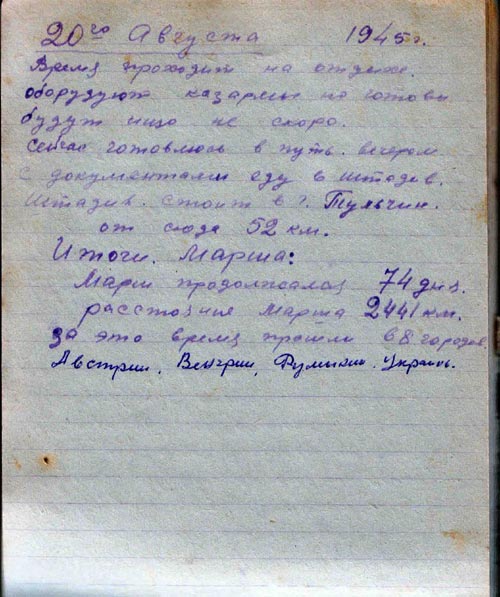 20го Августа 1945 г.
Время проходит на отдыхе.
оборудуют казармы но готовы
будут ищо не скоро.
Сейчас готовлюсь в путь. вечером
с документами еду в штадив.
Штадив. стоит в г. Тульчин.
от сюда 52 км.
Итоги. Марша:
Марш продолжался 74 дня.
расстояния Марша 2441 км.
За это время прошли 8 городов
Австрии, Венгрии, Румынии. Украины.